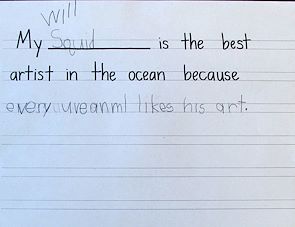 will
My Squid is the best
artist in the ocean because
every uveanml likes his art.